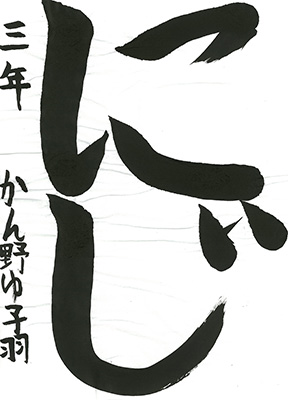 にじ
三年 かん野ゆ子羽